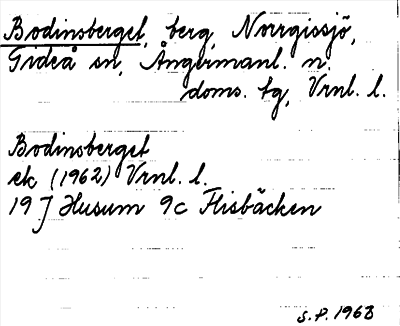 Bodinsberget, berg, Norrgissjö,
Gideå sn, Ångermanl. n.
doms. tg, Vrnl. l.
Bodinsberget
ek (1962) Vrnl. l.
19 J Husum 9c Flisbäcken
S.P. 1968